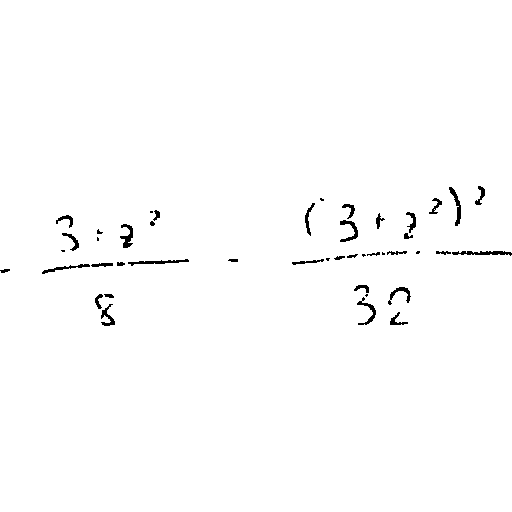 - \frac{3+z^2}{8} - \frac{(3+z^2)^2}{32}